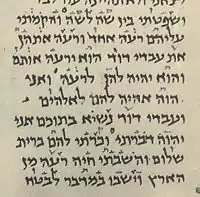 ושפטתי בין שה לשה והקמתי
עליהם רעה אחד ורעה אתהן
את עבדי דויד הוא ירעה אותם
והוא יהיה להן לרעה ואני
יהוה אהיה להם לאלהים
ועבדי דוד נשיא בתוכם אני
יהוה דברתי וכרתי להם ברית
שלום והשבתי חיה רעה מן
הארץ וישבו במדבר לבטח